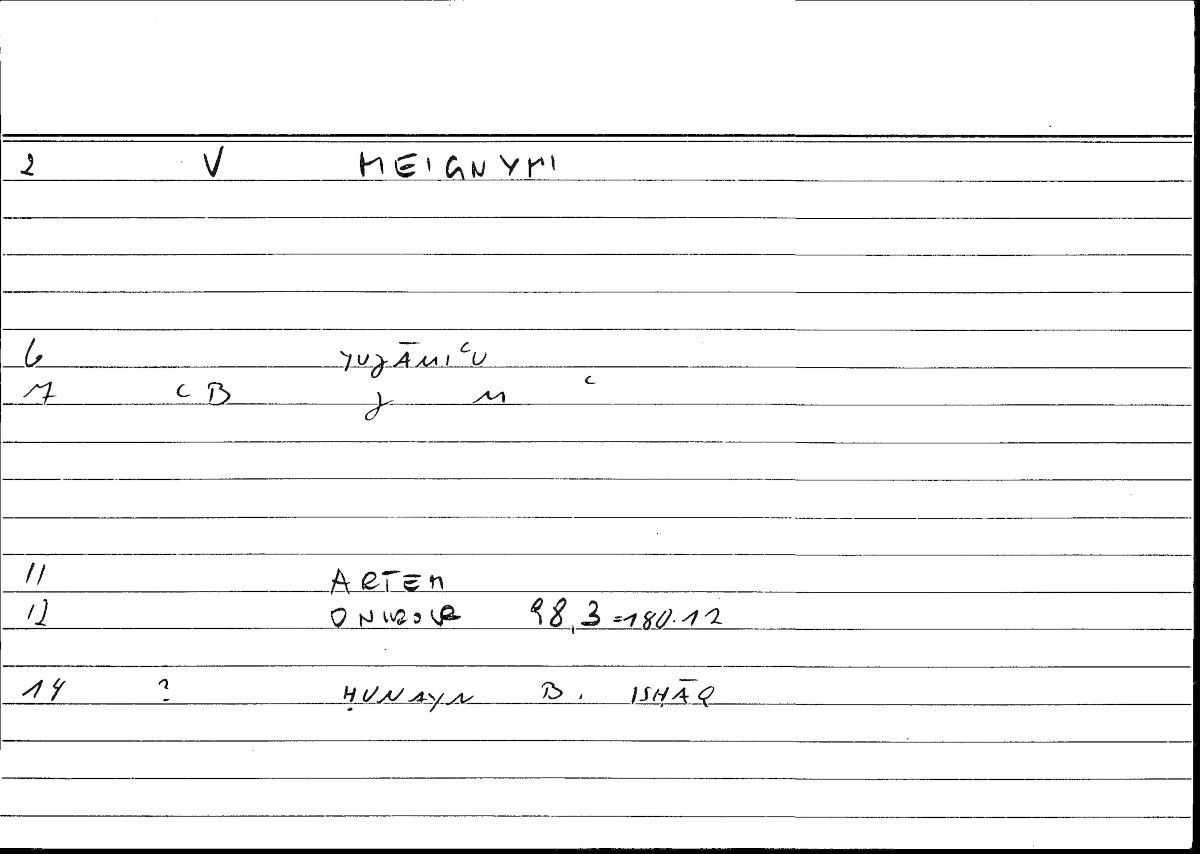 2 V MEIGNYMI
6 YUJĀMIʿU
7 C B J M ʿ
11 ARTEM
12 ONIROCR 98,3=180.12
14 ? ḤUNAYN B. ISḤĀQ